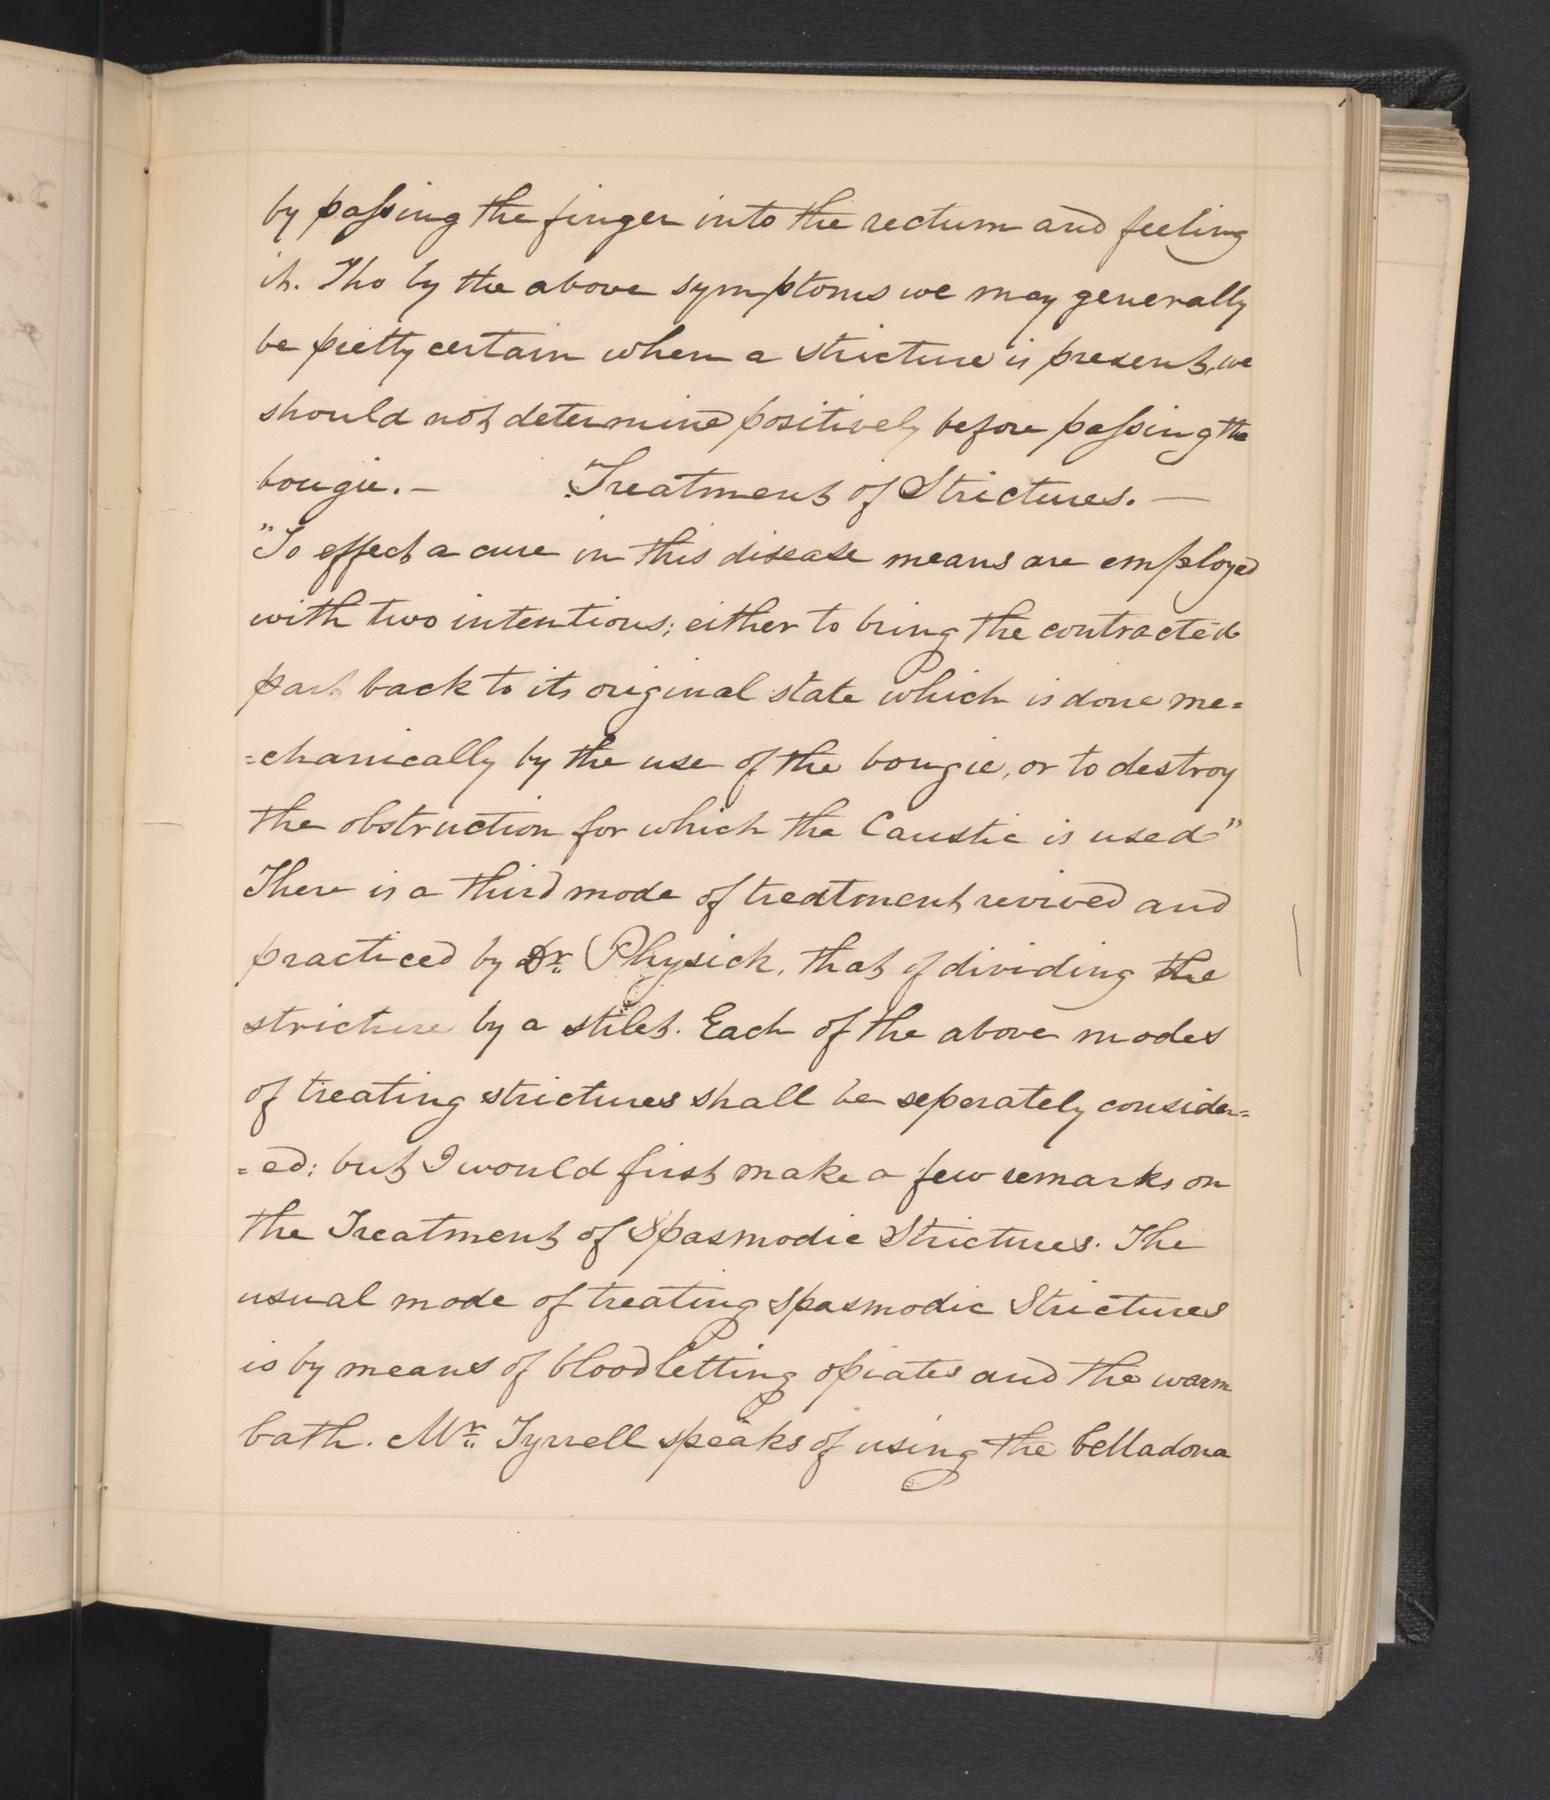 by passing the finger into the rectum and feeling
it. Tho by the above symptoms we may generally
be pretty certain when a stricture is present, we
should not determine positively before passing the
bougie. — Treatment of Strictures. —
"To effect a cure in this disease means are employed
with two intentions; either to bring the contracted
part back to its original state which is done me=
=chanically by the use of the bougie, or to destroy
the obstruction for which the Caustic is used"
There is a third mode of treatment revived and
practiced by Dr. Physick, that of dividing the
stricture by a stilet. Each of the above modes
of treating strictures shall be seperately consider=
=ed: but I would first make a few remarks on
the Treatment of Spasmodic Strictures. The
usual mode of treating Spasmodic Strictures
is by means of bloodletting opiates and the warm
bath. Mr. Tyrrell speaks of using the belladona